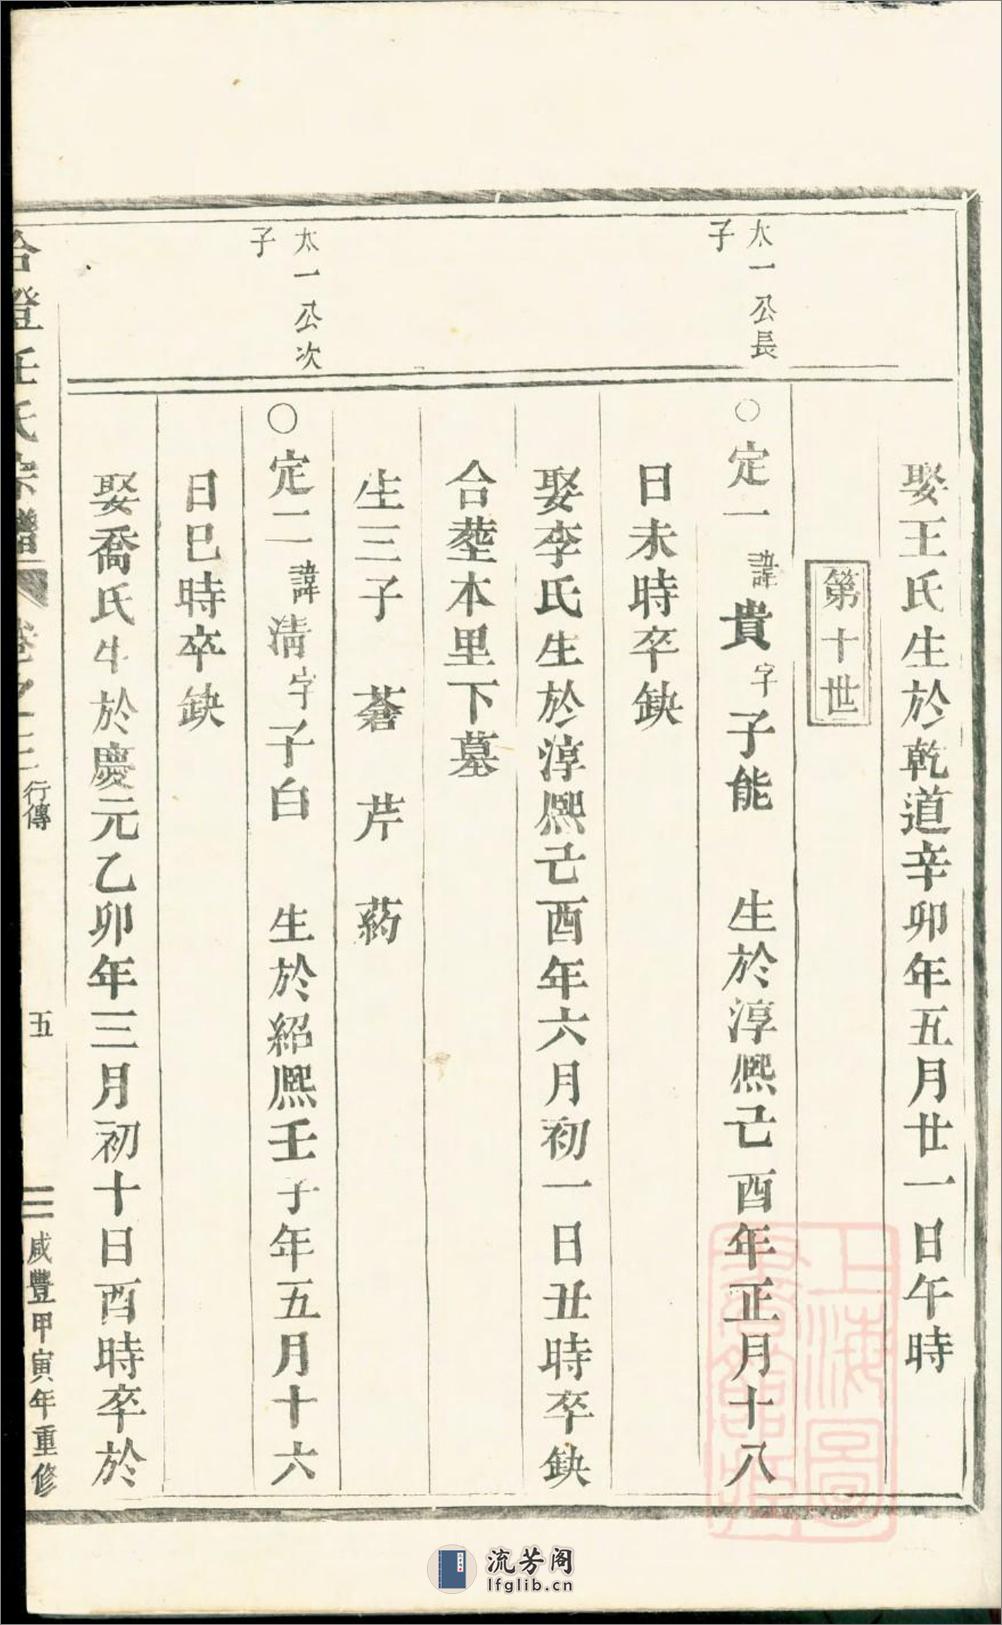 娶王氏生於乾道辛卯年五月廿一日午時
第十世
太一公長
子
○定一諱貴字子能 生於淳熈己酉年正月十八
日未時卒缺
娶李氏生於淳熈己酉年六月初一日丑時卒缺
合塟本里下墓
生三子 蒼 芹 葯
太一公次
子
○定二諱淸字子白 生於紹熈壬子年五月十六
日巳時卒缺
娶喬氏生於慶元乙卯年三月初十日酉時卒於
澄任氏宗譜
卷之二 行傳
五
咸豐甲寅年重修
上海圖書館藏
流芳阁
lfglib.cn